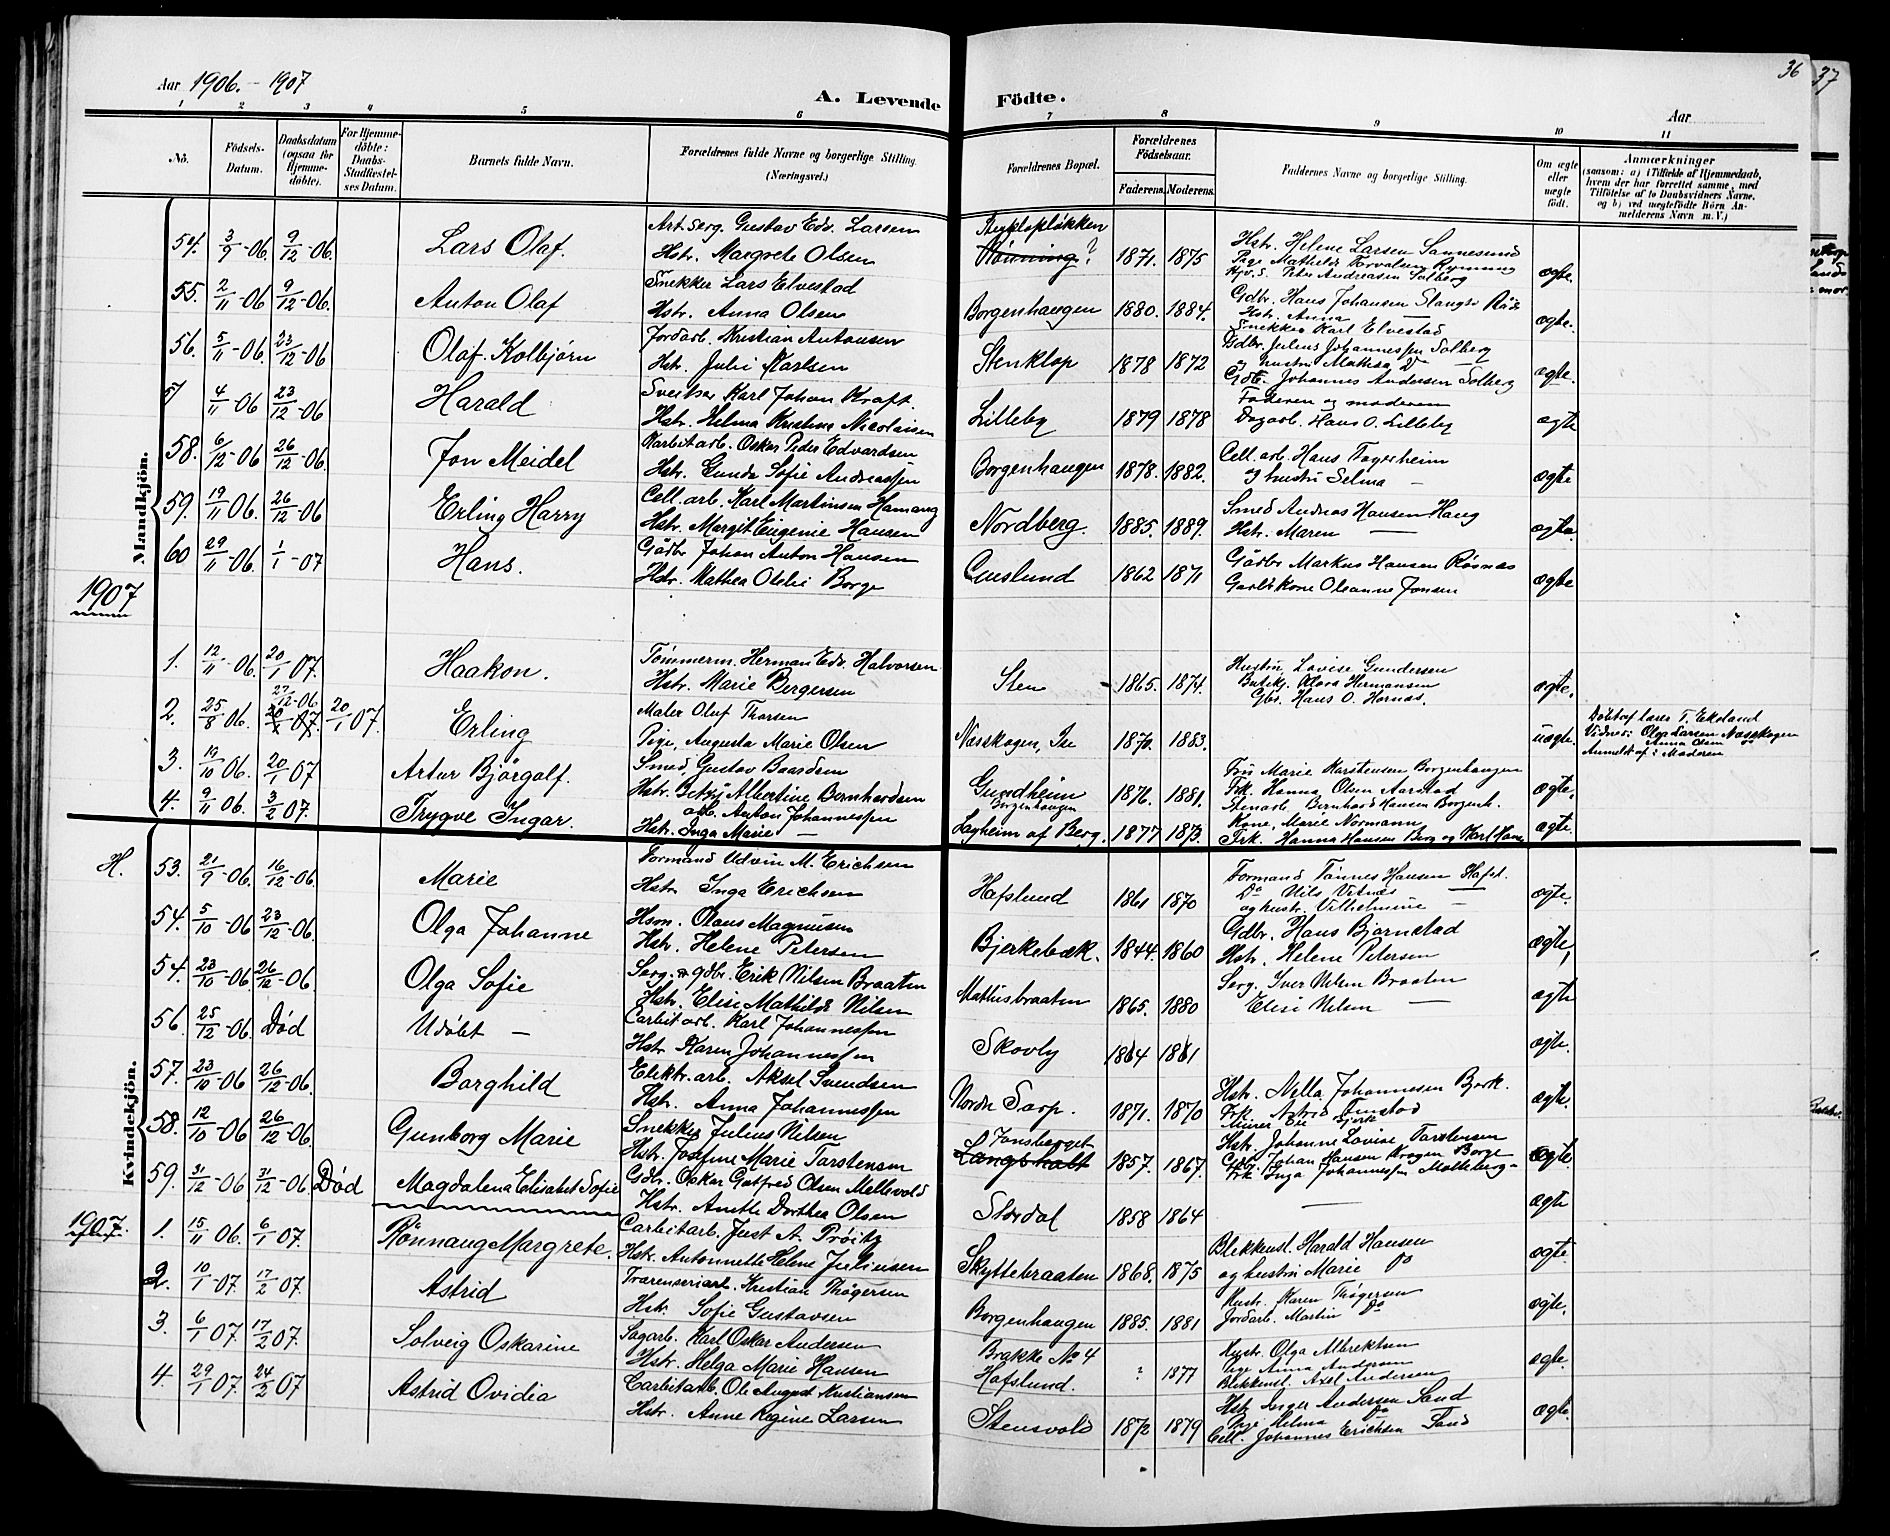 Aar 1906 - 1907
A. Levende Födte.
Aar
36
37
1 2 3 4 5 6 7 8 9 10 11
No. Födsels-Datum. Daabsdatum (ogsaa for Hjemme-döbte). For Hjemme-döbte: Daabs-Stadfæstel-ses Datum. Barnets fulde Navn. Forældrenes fulde Navne og borgerlige Stilling. (Næringsvei.) Forældrenes Bopæl. Forældrenes Födselsaar. Faderens. Moderens. Faddernes Navne og borgerlige Stilling. Om ægte eller uægte födt. Anmærkninger (saasom: a) i Tilfælde af Hjemmedaab, hvem der har forrettet samme, med Tilföielse af to Daabsvidners Navne, og b) ved uægtefödte Börn An-melderens Navn m. V.)
Mandkjön.
54. 3/9-06 9/12-06. Lars Olaf. Art. Serg. Gustav Edv. Larsen Hstr. Margrete Olsen Rönning? 1871. 1875 Hstr. Helene Larsen Sannesund ægte.
55. 2/11-06 9/12-06. Anton Olaf Snekker Lars Elvestad Hstr. Anna Olsen Borgenhaugen 1880. 1884. Gdbr. Hans Johansen Hstr. Anna — Snekker Karl Elvestad ægte.
56. 5/11-06. 23/12-06 Olaf Kolbjørn Jordarb. Kristian Antonsen Hstr. Julie Karlsen Stenklop 1878 1872 Gdbr. Julius Johannessen Solberg og hustru Mathea Do Gdb. Johannes Andersen Solberg ægte.
57 4/11-06 23/12-06 Harald Sveitser Karl Johan Kraft. Hstr. Helma Kristine Nicolaisen Lilleby 1879 1878 Faderen og moderen Dagarb. Hans O. Lilleby ægte
58. 6/12-06 26/12-06. Jon Meidel Karbitarb. Oskar Peder Edvardsen Hstr. Gunda Sofie Andreassen Borgenhaugen 1878. 1882. Cell. arb. Hans Fagerheim og hustru Selma — ægte
59. 19/11 06. 26/12-06 Erling Harry Cell. arb. Karl Martinsen Hamang Hstr. Margit Eugenie Hansen Nordberg. 1885. 1889. Smed Andreas Hansen Haug Hstr. Maren — ægte.
60 29/11-06. 1/1-07 Hans. Gårdbr Johan Anton Hansen Hstr. Mathea Otelie Borge Guslund 1862 1871 Gårdbr Markus Hansen Røsnæs Gaardskone Oleanne Jonsen ægte
1907
1. 12/11-06. 20/1 07. Haakon. Tömmerm. Herman Edv. Halvorsen Hstr. Marie Bergersen Sten 1865. 1874. Hustru Lovise Gundersen Butikj. Olava Hermansen Gbr. Hans O. Hornæs. ægte.
2. 25/8 06. 27/12-06 20/1 07. 20/1 07. Erling Maler Oluf Thorsen Pige, Augusta Marie Olsen Næsskogen, Ise 1870. 1883. uægte. Döbt af lærer T. Ekeland Vidner: Olga Larsen Næsskogen Anna Olsen do Anmeldt af: Moderen
3. 19/10 06. 20/1 07 Artur Bjørgolf. Smed, Gustav Baardsen Hstr. Betzy Albertine Bernhardsen Gundheim Borgenhaugen 1876. 1881. Fru Marie Karstensen Borgenhaugen Frk. Hanna Olsen Aarstad Stenarb. Bernhard Hansen Borgenh. ægte.
4. 9/11 06. 3/2 07. Trygve Ingar. arb. Anton Johannessen Hstr. Inga Marie — Layheim af Berg. 1877 1873. Kone, Marie Normann Frk. Hanna Hansen Berg og Karl Hans ægte.
H.
Kvindekjön.
53. 21/9-06. 16/12-06. Marie Formand Udvin M. Erichsen Hstr. Inga Erichsen Hafslund 1861 1870 Formand Tönnes Hansen Hafsl. Do Nils Vitnæs — og hustr. Vilhelmine — ægte.
54. 5/10-06. 23/12-06. Olga Johanne Hsm. Olaus Magnusen Hstr. Helene Petersen Bjerkebæk. 1844. 1860 Gdbr. Hans Bjørnstad Hstr. Helene Petersen ægte,
54. 23/10-06. 26/12-06. Olga Sofie Serg. og gdbr. Erik Nilsen Braaten Hstr. Elise Mathilde Nilsen Mathisbraaten 1865. 1880 Serg. Iver Nilsen Braaten Elise Nilsen — ægte
56. 25/12-06. Död Udöbt — Carbit arb. Karl Johannessen Hstr Karen Johannessen Skovly 1864 1861 ægte.
57. 23/10-06 26/12-06. Borghild Elektr. arb. Aksel Svendsen Hstr. Anna Johannessen Nordre Sarp. 1871. 1870 Hstr. Nella Johannesen Bjørk. ægte.
58. 12/10-06 26/12-06. Gunborg Marie Snekker Julius Nilsen Hstr. Josefine Marie Torstensen Jonsberget Langsholt 1857. 1867. Hstr. Johanne Lovise Torstensen Gdbr Johan Hansen Krogen Borge Frk Inga Johannessen ægte.
59. 31/12-06 31/12-06. Död Magdalena Elisabet Sofie Gdbr. Oskar Gotfred Olsen Mellevold Hstr. Anette Dorthea Olsen Stordal 1858 1864 — ægte
1907.
1. 15/11 06. 6/1 07. Rönnaug Margrete. Carbitarb. Just A. Prøitz Hstr. Antonnette Helene Juliusen Skyttebraaten 1868. 1875 Blekkensl. Harald Hansen og hustru Marie do ægte.
2. 10/1-07. 17/2 07. Astrid Kristian Thøgersen Hstr. Sofie Gustavsen Borgenhaugen 1885. 1881 Hustr. Karen Thøgersen Jordarb. Martin do ægte.
3. 6/1 07. 17/2 07. Solveig Oskarine Sagarb. Karl Oskar Andersen Hstr. Helga Marie Hansen Brakke No 4 Hafslund. ? 1877 Hustr. Olga Albrektsen Pige Anna Andersen Blekkensl. Axel Andersen ægte.
4. 29/1 07. 24/2 07 Astrid Ovidia Carbitarb. Ole August Kristiansen Hstr. Anne Regine Larsen Stensvold 1872 1879 Hstr Inger Andersen Sand Pige Helma do Cell. Johannes Erichsen Sand ægte.